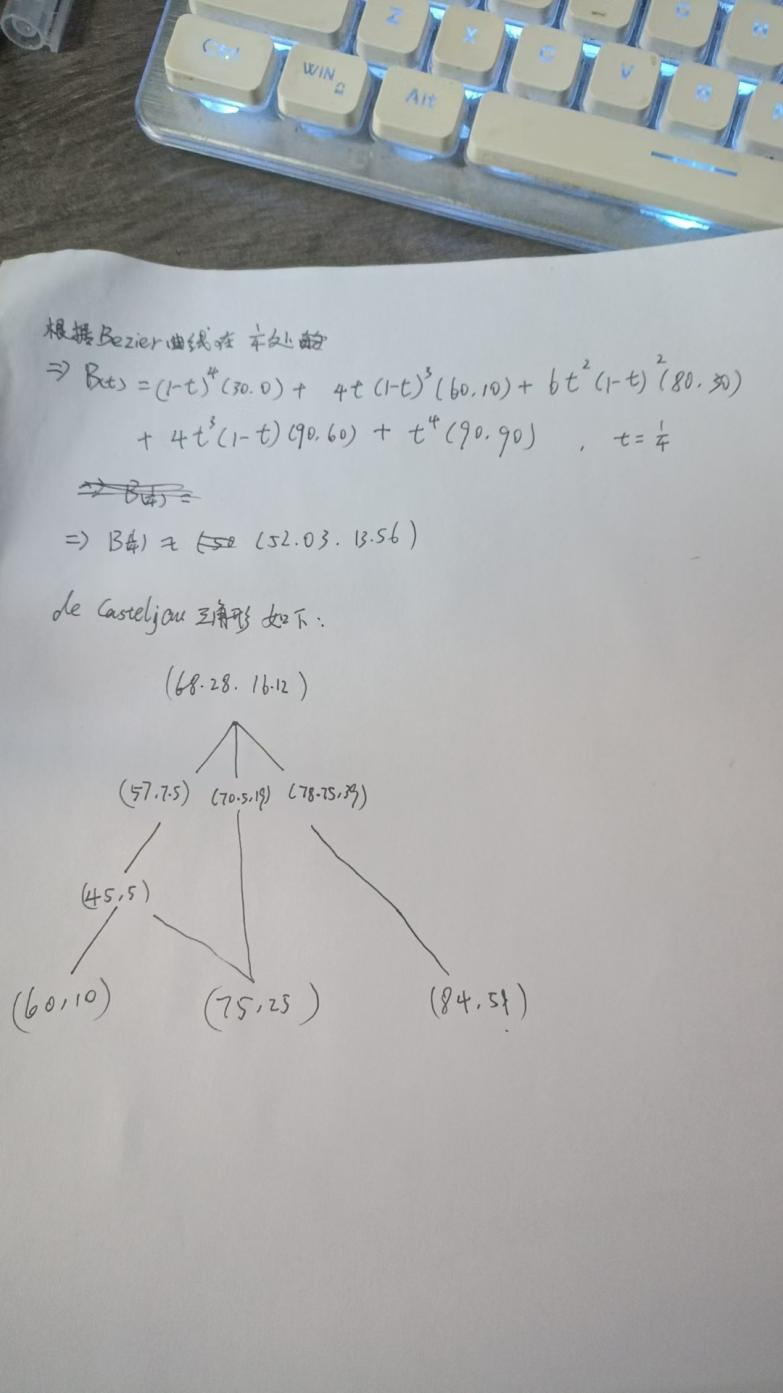 Ctrl
WIN
Alt
Z
X
C
V
根据Bezier曲线在 1/4处
⇒ B(t) = (1-t)^4 (30.0) + 4t (1-t)^3 (60.10) + 6t^2 (1-t)^2 (80.30)
+ 4t^3 (1-t) (90.60) + t^4 (90.90) , t = 1/4
⇒ B(1/4) ≈ (52.03. 13.56)
de Casteljau 三角形 如下:
(68.28. 16.12)
(57.7.5) (70.5,19) (78.75,39)
(45,5)
(60,10) (75,25) (84,51)